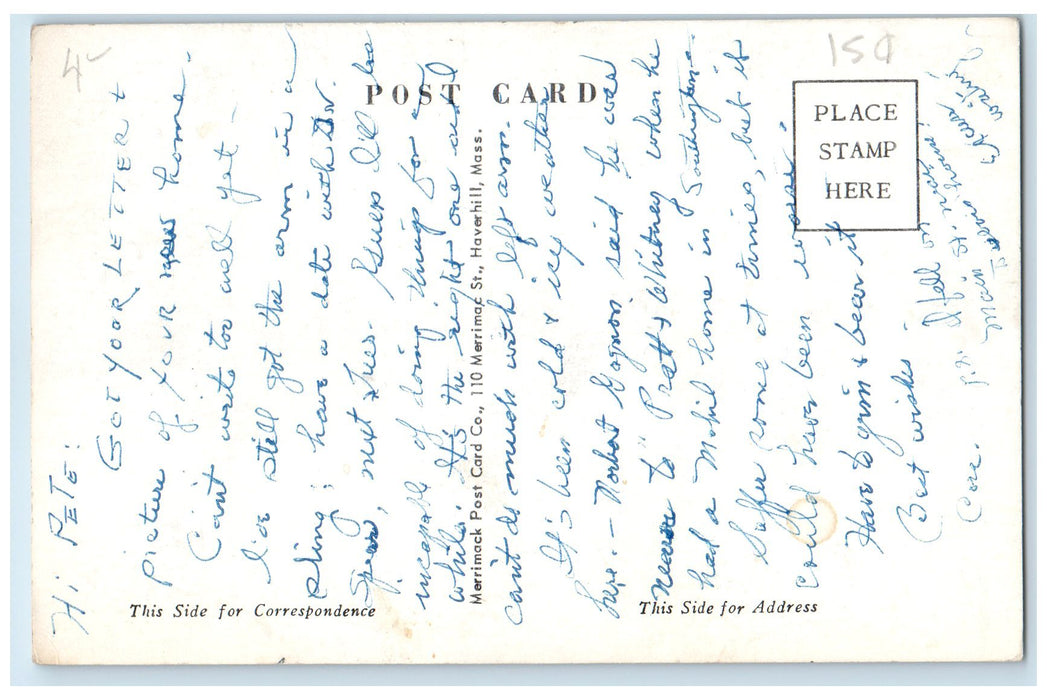 4-
15¢
POST CARD
PLACE
STAMP
HERE
Merrimack Post Card Co., 110 Merrimac St., Haverhill, Mass.
This Side for Correspondence
This Side for Address
Hi PETE:
GOT YOUR LETTER +
picture of YOUR home.
Can't write too well yet -
I've still got the arm in a
sling; have a date with Dr.
next Tues. Guess I'll be
incapable of doing things for a
while. It's the right one and
can't do much with left arm.
It's been cold & icy weather
here. - Norbert Gagnon said he was
near to Pratt & Whitney when he
had a Mobil home in Southington.
Suffer some at times, but it
could have been worse.
Have to grin & bear it
Best wishes
P.S. I fell on
Main St. near